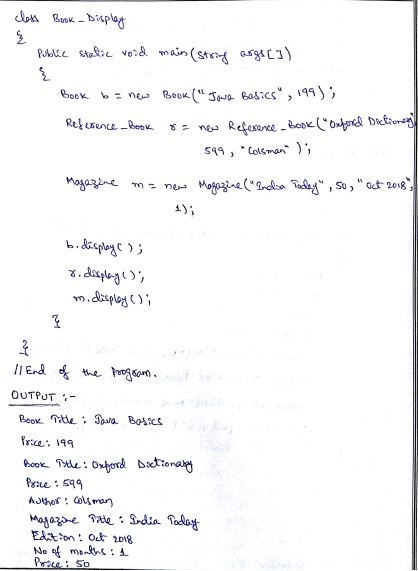 class Book_Display
{
Public static void main(String args[])
{
Book b = new Book("Java Basics", 199);
Reference_Book r = new Reference_Book("Oxford Dictionary
599, "Colsman");
Magazine m = new Magazine("India Today", 50, "Oct 2018",
1);
b.display();
r.display();
m.display();
}
}
//End of the program.
OUTPUT :-
Book Title : Java Basics
Price : 199
Book Title : Oxford Dictionary
Price : 599
Author : Colsman
Magazine Title : India Today
Edition : Oct 2018
No of months : 1
Price : 50